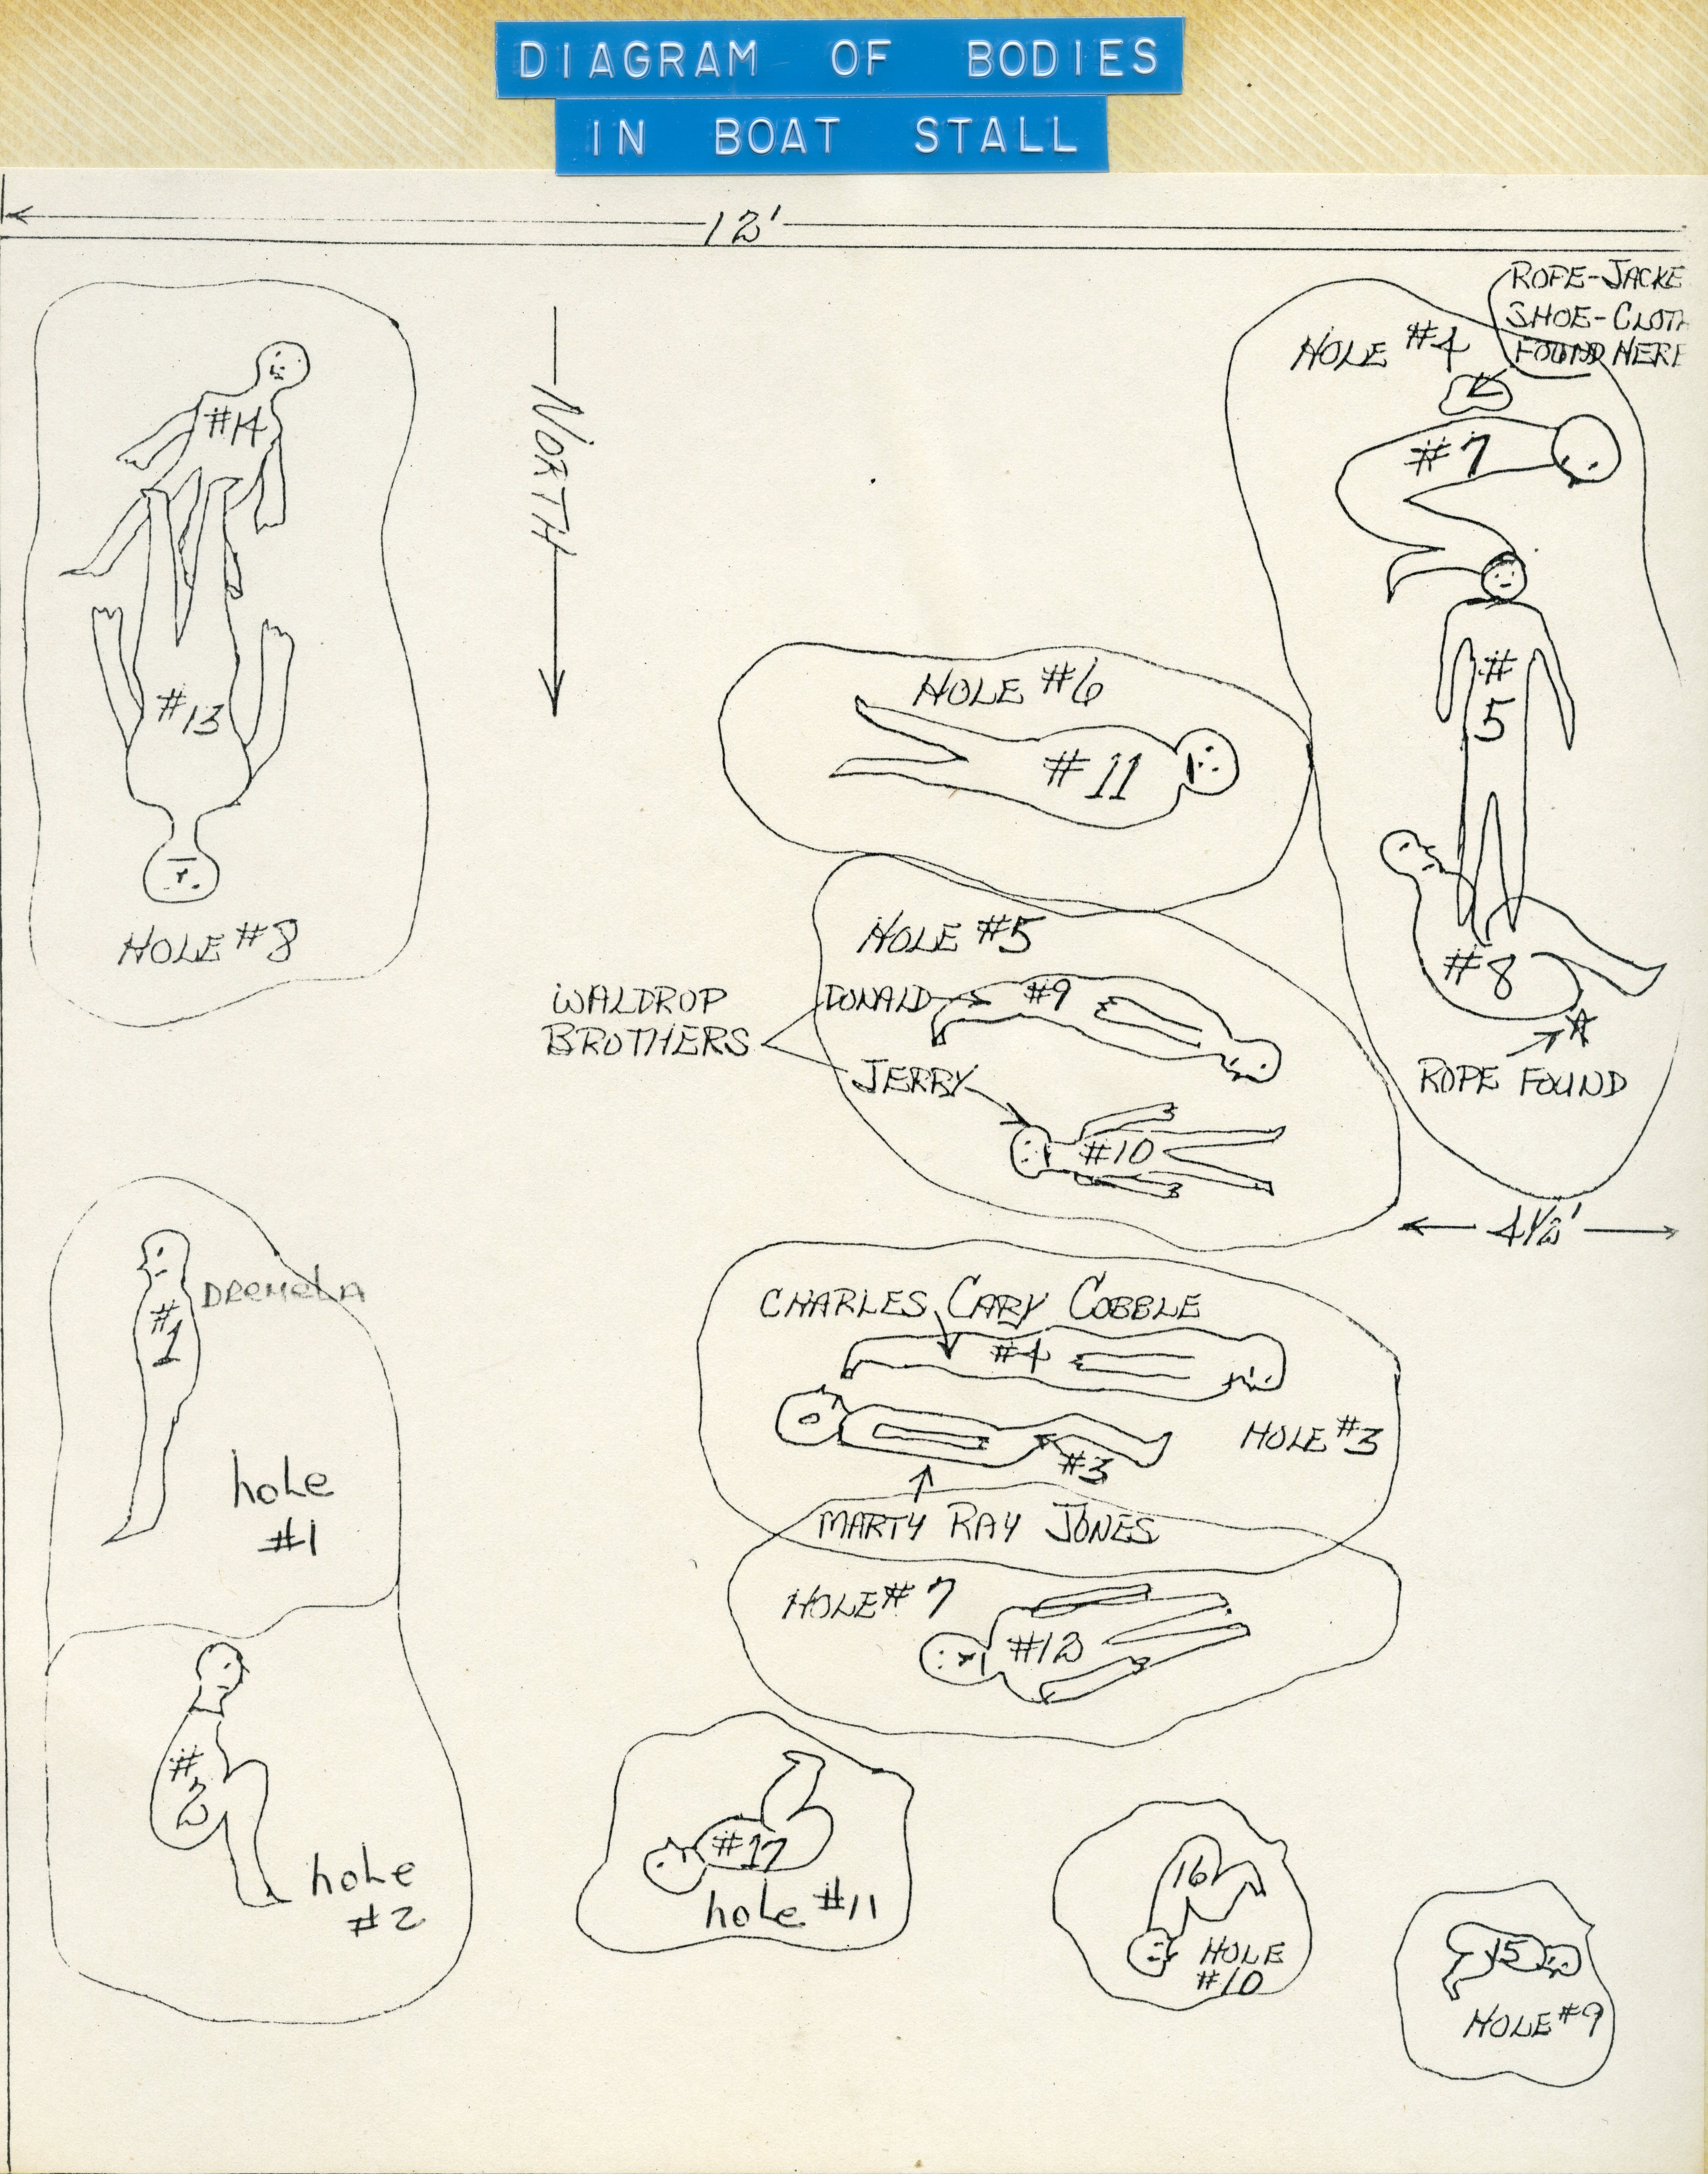 DIAGRAM OF BODIES
IN BOAT STALL
12'
ROPE-JACKE
SHOE-CLOTH
FOUND HERE
HOLE #4
#7
#14
NORTH
#5
#13
HOLE #6
#11
HOLE #8
#8
ROPE FOUND
HOLE #5
WALDROP
BROTHERS
DONALD
#9
JERRY
#10
4½'
#1
CHARLES CARY COBBLE
#4
HOLE #3
#3
MARTY RAY JONES
hole
#1
HOLE #7
#12
#2
hole
#2
#17
hole #11
16
HOLE
#10
15
HOLE #9